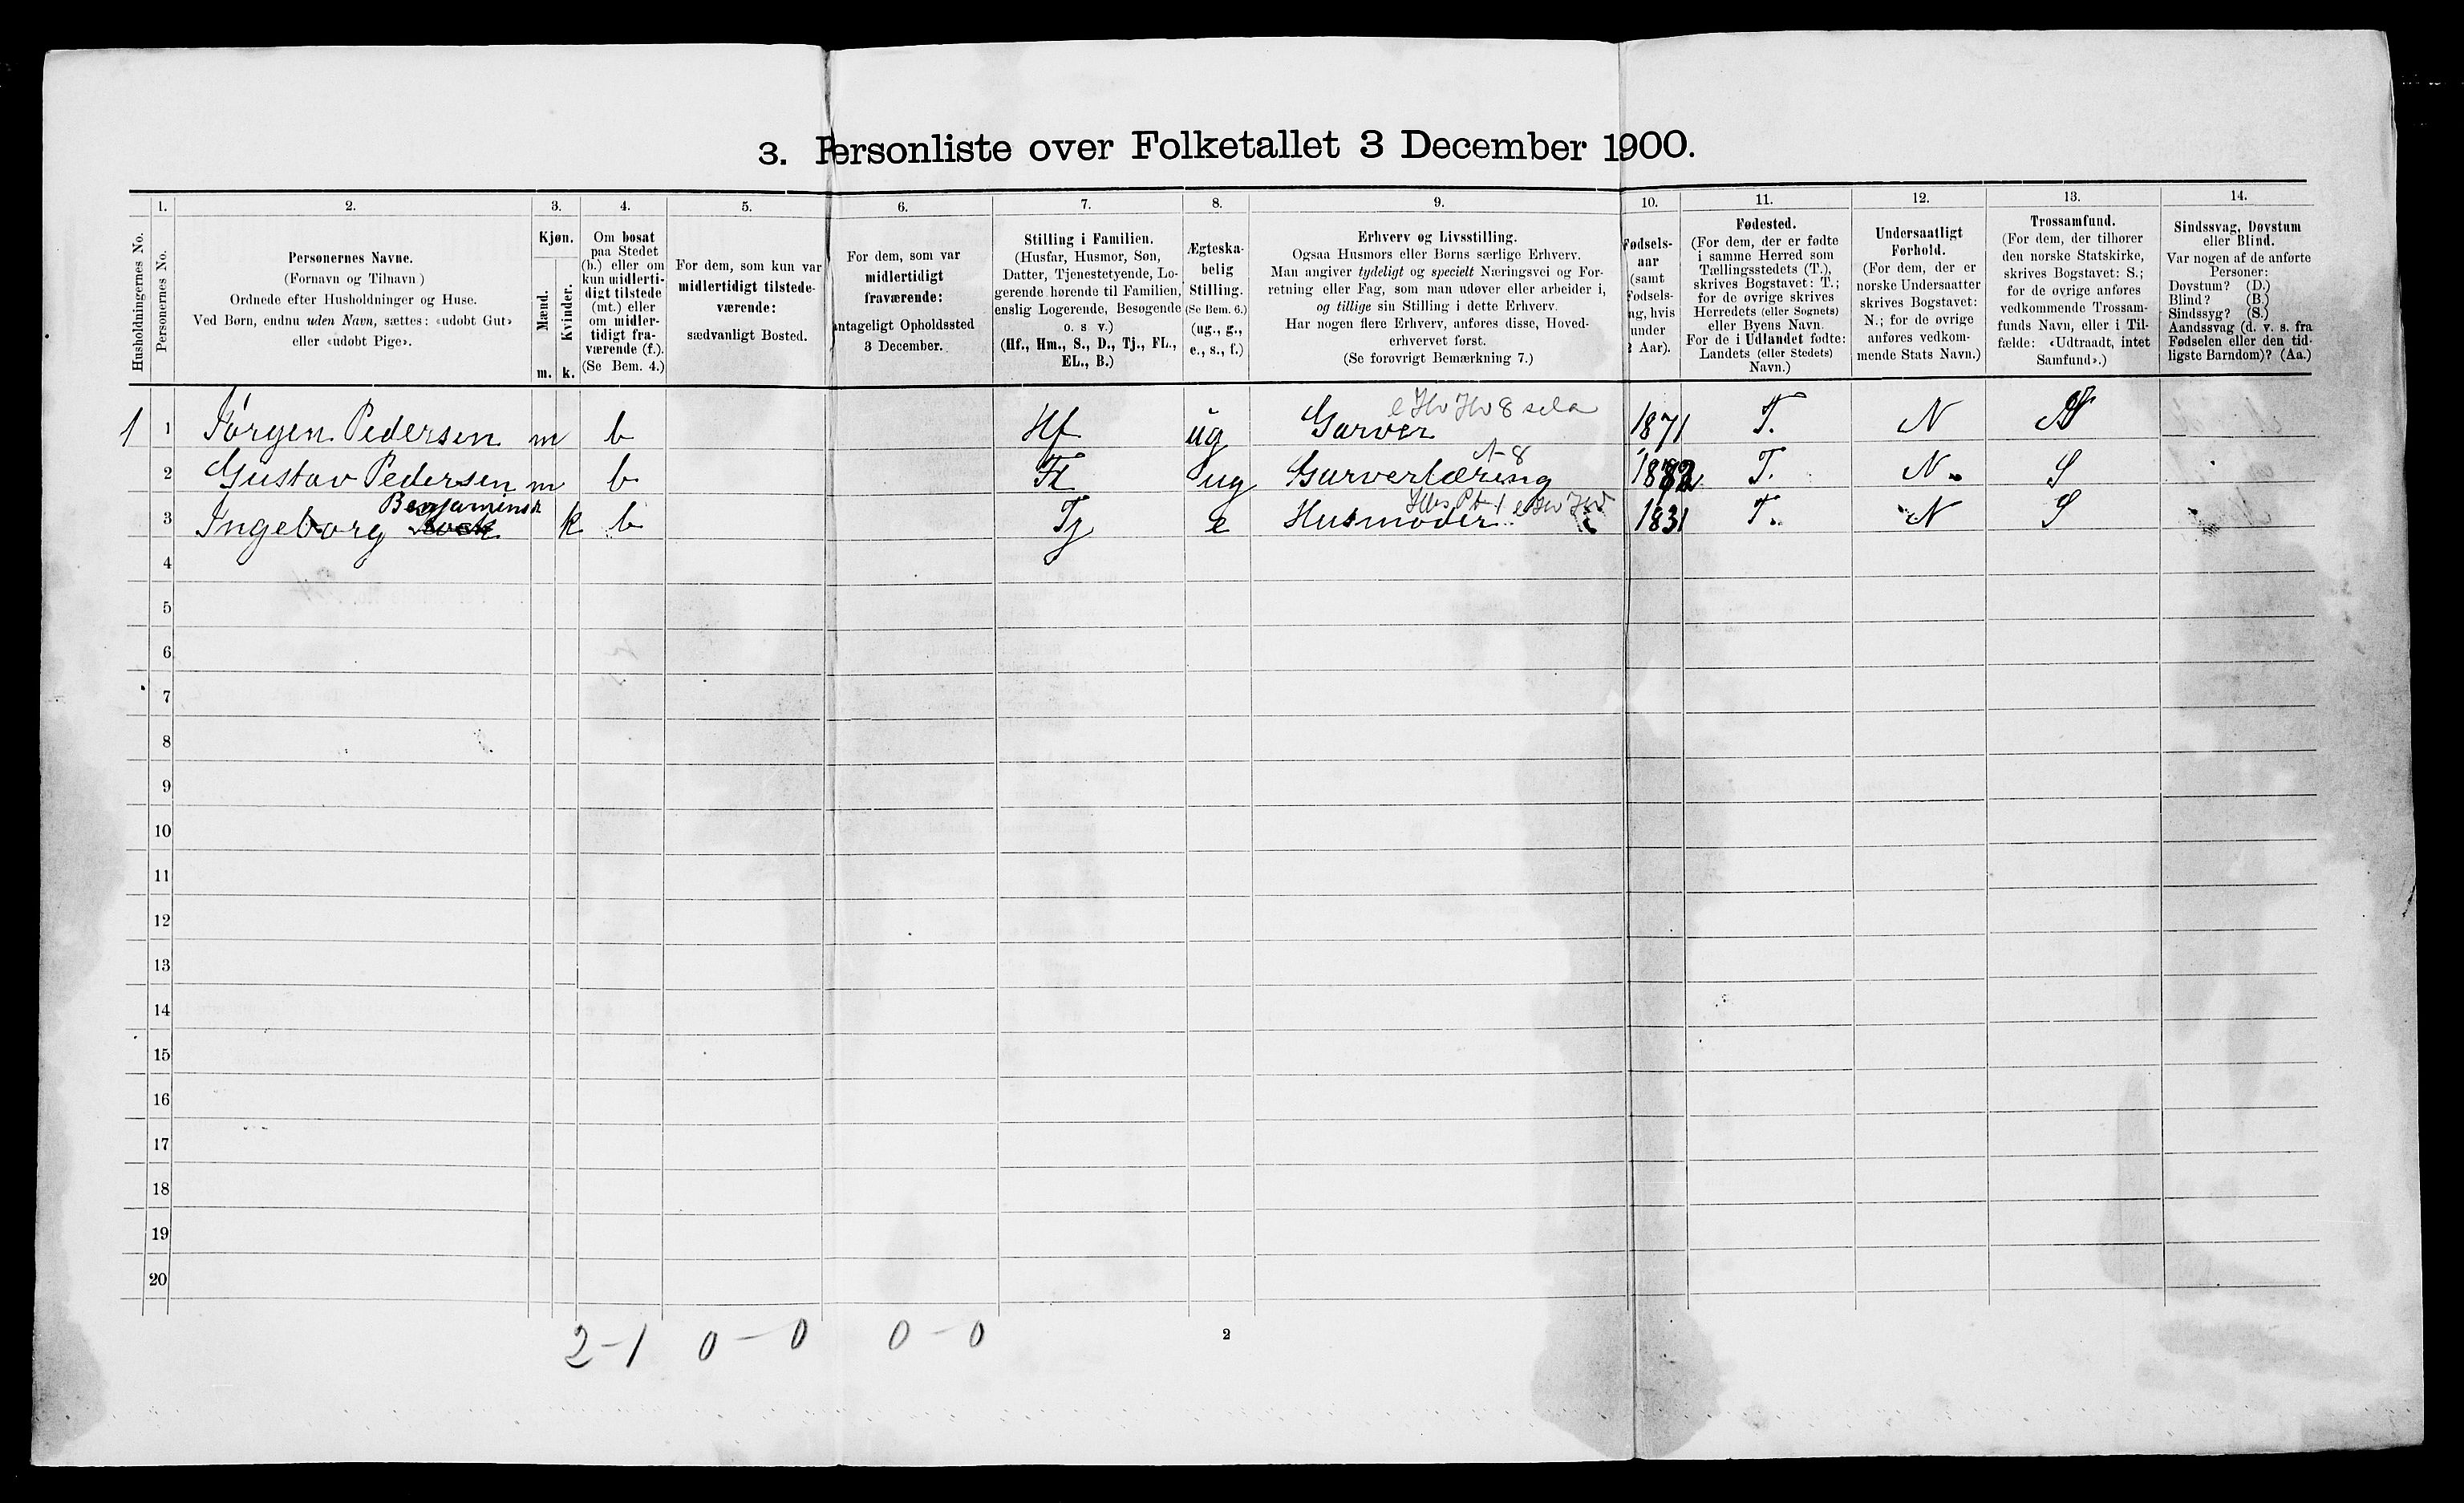 3. Personliste over Folketallet 3 December 1900.
1. 2. 3. 4. 5. 6. 7. 8. 9. 10. 11. 12. 13. 14.
Husholdningernes No.
Personernes No.
Personernes Navne.
(Fornavn og Tilnavn)
Ordnede efter Husholdninger og Huse.
Ved Børn, endnu uden Navn, sættes: «udøbt Gut»
eller «udøbt Pige».
Kjøn.
Mænd.
Kvinder.
m. k.
Om bosat
paa Stedet
(b.) eller om
kun midlerti-
digt tilstede
(mt.) eller
om midler-
tidigt fra-
værende (f.).
(Se Bem. 4.)
For dem, som kun var
midlertidigt tilstede-
værende:
sædvanligt Bosted.
For dem, som var
midlertidigt
fraværende:
antageligt Opholdssted
3 December.
Stilling i Familien.
(Husfar, Husmor, Søn,
Datter, Tjenestetyende, Lo-
gerende hørende til Familien,
enslig Logerende, Besøgende
o. s. v.)
(Hf., Hm., S., D., Tj., FL.,
EL., B.)
Ægteska-
belig
Stilling.
(Se Bem. 6.)
(ug., g.,
e., s., f.)
Erhverv og Livsstilling.
Ogsaa Husmors eller Børns særlige Erhverv.
Man angiver tydeligt og specielt Næringsvei og For-
retning eller Fag, som man udøver eller arbeider i,
og tillige sin Stilling i dette Erhverv.
Har nogen flere Erhverv, anføres disse, Hoved-
erhvervet først.
(Se forøvrigt Bemærkning 7.)
Fødsels-
aar
(samt
Fødsels-
ag, hvis
under
2 Aar).
Fødested.
(For dem, der er fødte
i samme Herred som
Tællingsstedets (T.),
skrives Bogstavet: T.;
for de øvrige skrives
Herredets (eller Sognets)
eller Byens Navn.
For de i Udlandet fødte:
Landets (eller Stedets)
Navn.)
Undersaatligt
Forhold.
(For dem, der er
norske Undersaatter
skrives Bogstavet:
N.; for de øvrige
anføres vedkom-
mende Stats Navn.)
Trossamfund.
(For dem, der tilhører
den norske Statskirke,
skrives Bogstavet: S.;
for de øvrige anføres
vedkommende Trossam-
funds Navn, eller i Til-
fælde: «Udtraadt, intet
Samfund».)
Sindssvag, Døvstum
eller Blind.
Var nogen af de anførte
Personer:
Døvstum? (D.)
Blind? (B.)
Sindssyg? (S.)
Aandssvag (d. v. s. fra
Fødselen eller den tid-
ligste Barndom)? (Aa.)
1 1 Jørgen Pedersen m b Hf ug Garver 1871 T. N S
2 Gustav Pedersen m b FL ug Garverlæring 1882 T. N. S
Benjaminsd
3 Ingeborg k b Tj e Husmoder 1831 T. N S
4
5
6
7
8
9
10
11
12
13
14
15
16
17
18
19
20
2-1 0-0 0-0
2